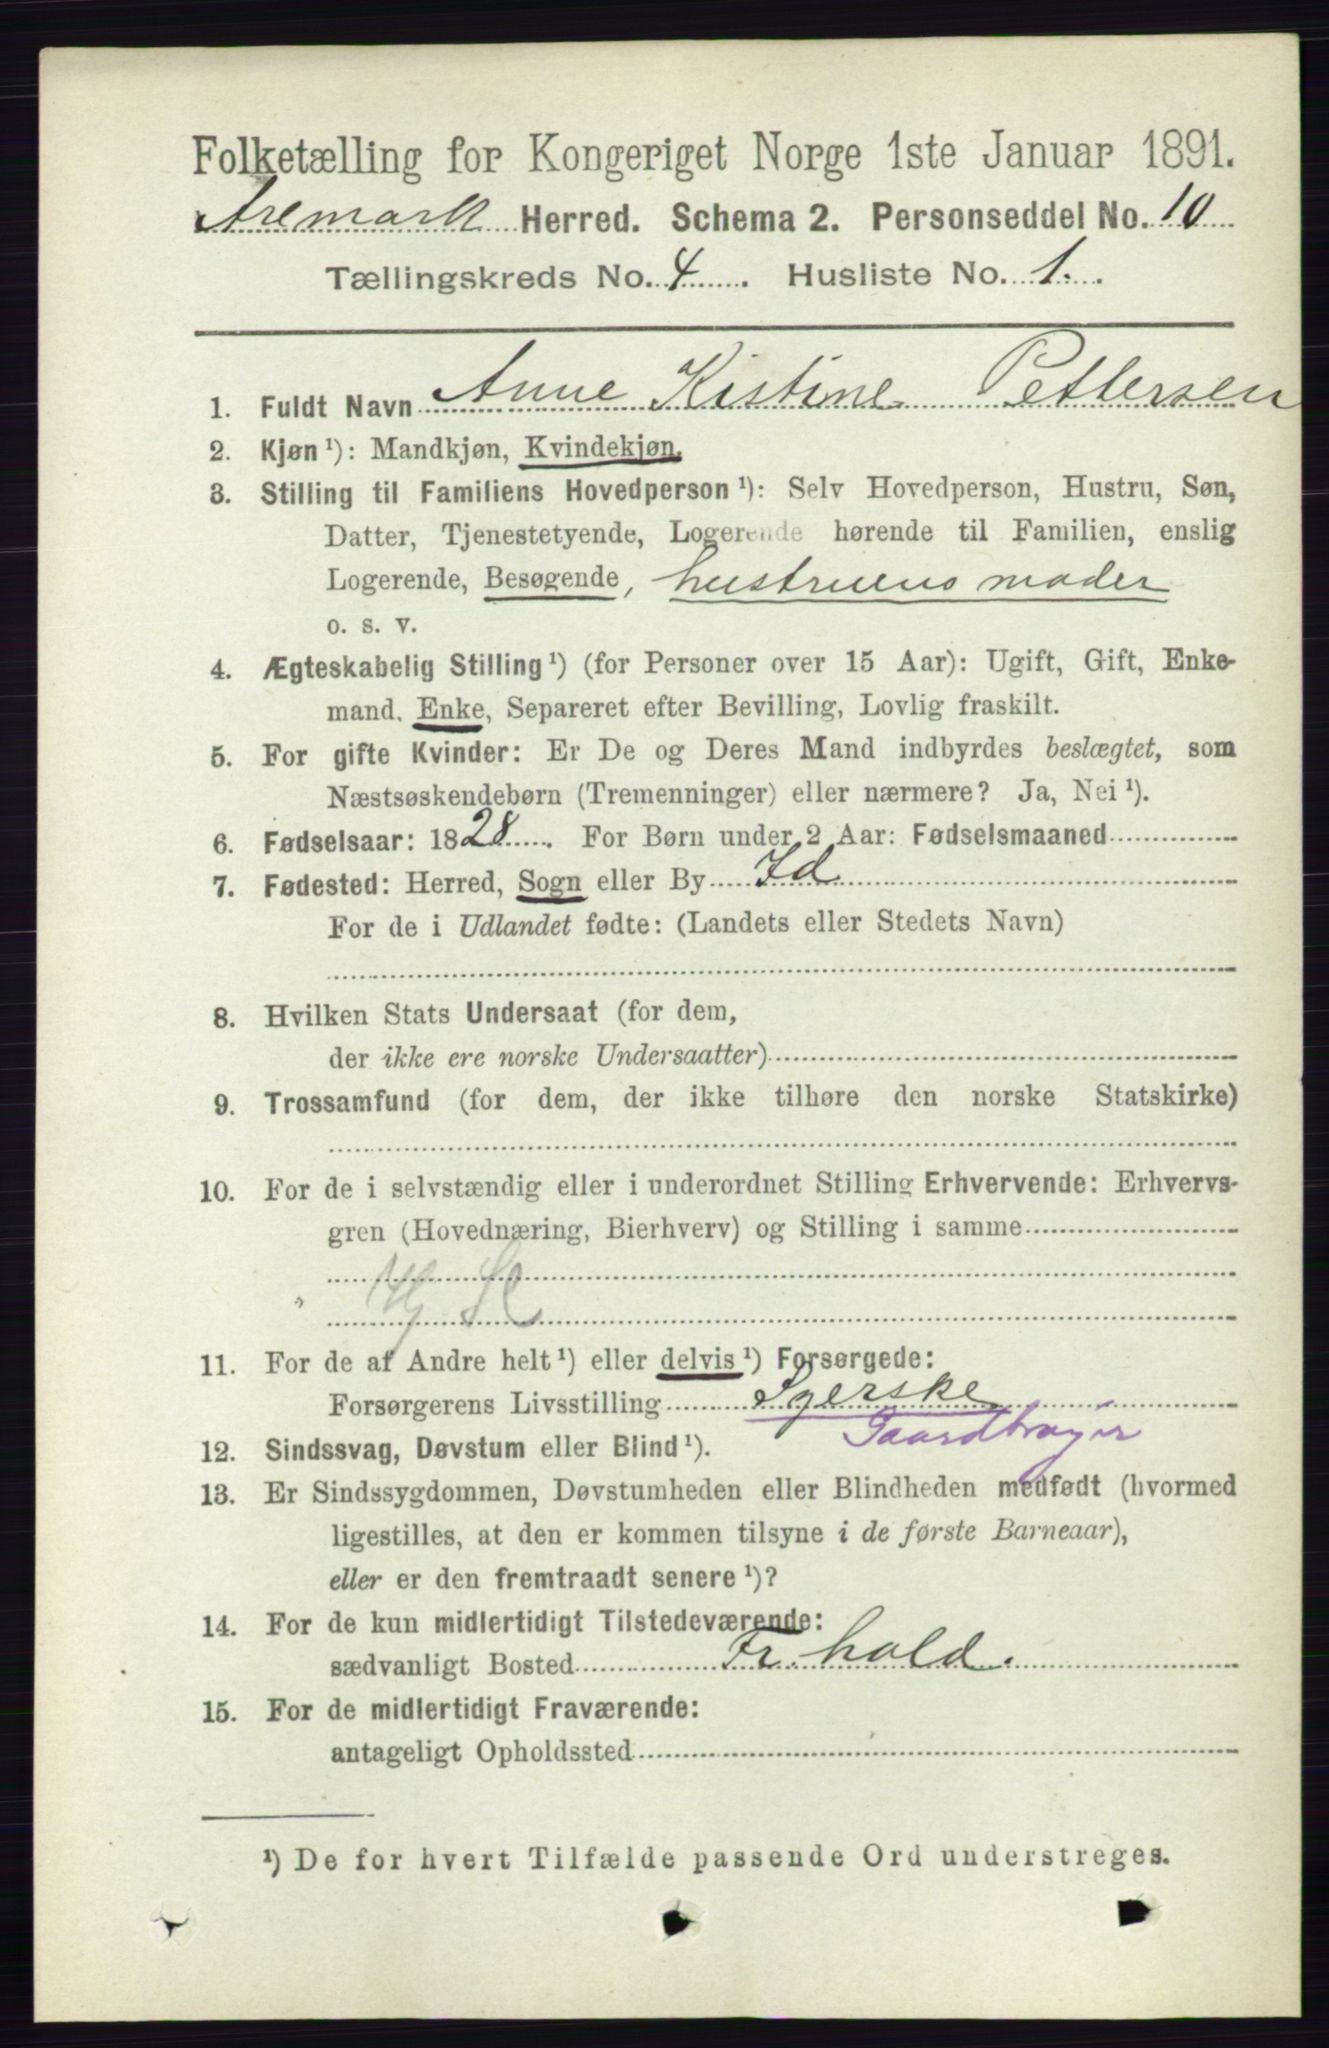 Folketælling for Kongeriget Norge 1ste Januar 1891.
Aremark Herred. Schema 2. Personseddel No. 10
Tællingskreds No. 4. Husliste No. 1.
1. Fuldt Navn Anne Kistine Pettersen
2. Kjøn ¹): Mandkjøn, Kvindekjøn.
3. Stilling til Familiens Hovedperson ¹): Selv Hovedperson, Hustru, Søn,
Datter, Tjenestetyende, Logerende hørende til Familien, enslig
Logerende, Besøgende, hustruens moder
o. s. v.
4. Ægteskabelig Stilling ¹) (for Personer over 15 Aar): Ugift, Gift, Enke-
mand, Enke, Separeret efter Bevilling, Lovlig fraskilt.
5. For gifte Kvinder: Er De og Deres Mand indbyrdes beslægtet, som
Næstsøskendebørn (Tremenninger) eller nærmere? Ja, Nei ¹).
6. Fødselsaar: 1828. For Børn under 2 Aar: Fødselsmaaned
7. Fødested: Herred, Sogn eller By Id
For de i Udlandet fødte: (Landets eller Stedets Navn)
8. Hvilken Stats Undersaat (for dem,
der ikke ere norske Undersaatter)
9. Trossamfund (for dem, der ikke tilhøre den norske Statskirke)
10. For de i selvstændig eller i underordnet Stilling Erhvervende: Erhvervs-
gren (Hovednæring, Bierhverv) og Stilling i samme
11. For de af Andre helt ¹) eller delvis ¹) Forsørgede:
Forsørgerens Livsstilling Syerske
Gaardbruger
12. Sindssvag, Døvstum eller Blind ¹).
13. Er Sindssygdommen, Døvstumheden eller Blindheden medfødt (hvormed
ligestilles, at den er kommen tilsyne i de første Barneaar),
eller er den fremtraadt senere ¹)?
14. For de kun midlertidigt Tilstedeværende:
sædvanligt Bosted Fr.hald.
15. For de midlertidigt Fraværende:
antageligt Opholdssted
¹) De for hvert Tilfælde passende Ord understreges.